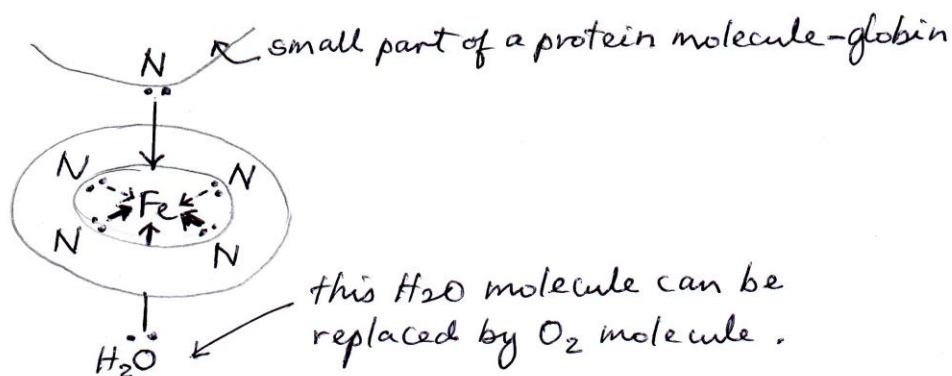 small part of a protein molecule-globin
N
N
N
Fe
N
N
this H2O molecule can be
replaced by O2 molecule.
H2O